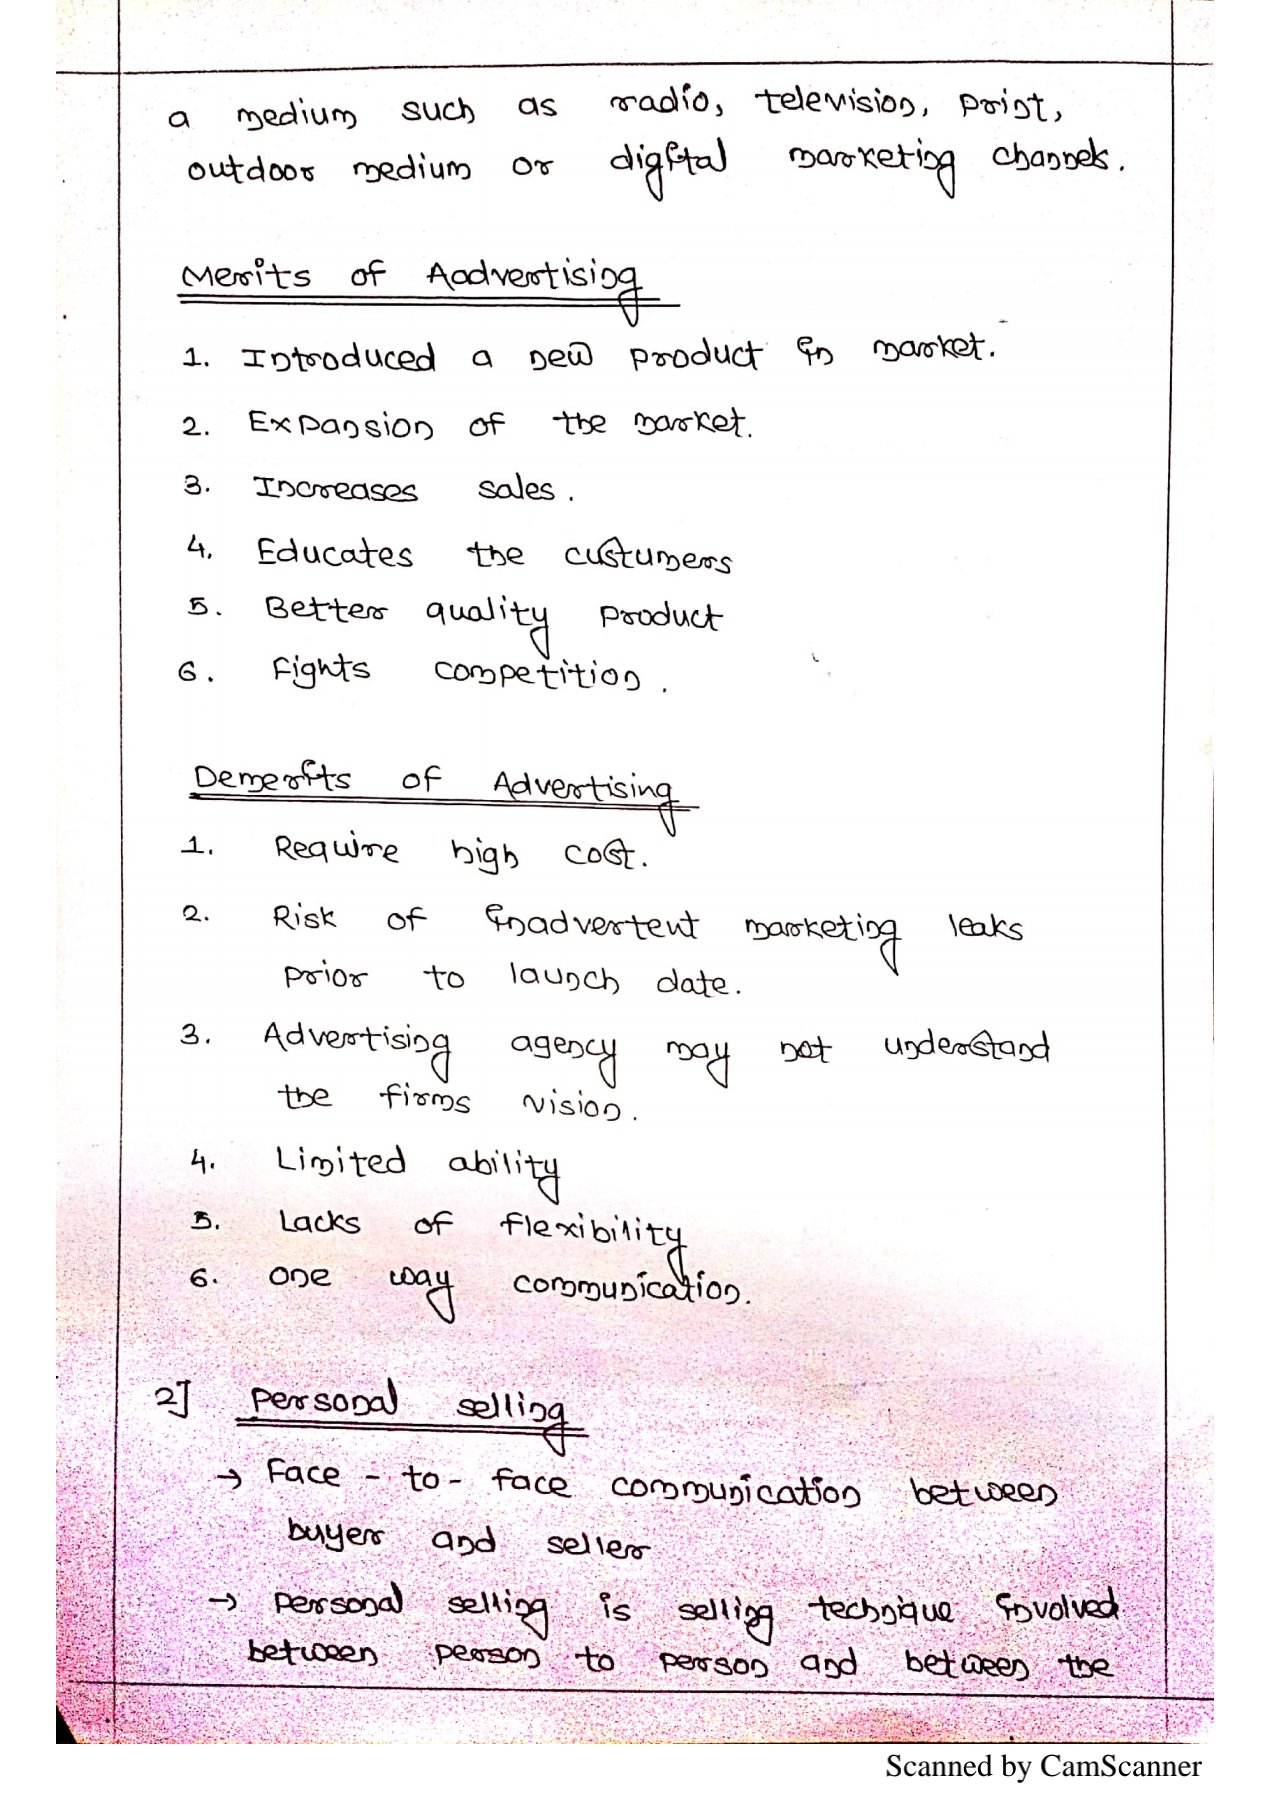 a medium such as radio, television, print,
outdoor medium or digital marketing channels.
Merits of Aadvertising
1. Introduced a new product in market.
2. Expansion of the market.
3. Increases sales.
4. Educates the custumers
5. Better quality product
6. Fights competition.
Demerits of Advertising
1. Require high cost.
2. Risk of inadvertent marketing leaks
prior to launch date.
3. Advertising agency may not understand
the firms vision.
4. Limited ability
5. Lacks of flexibility
6. One way communication.
2] Personal selling
→ Face - to - face communication between
buyer and seller
→ Personal selling is selling technique involved
between person to person and between the
Scanned by CamScanner